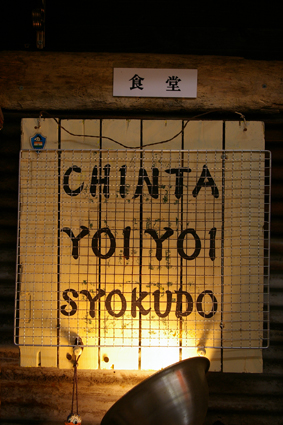 食堂
CHINTA
YOIYOI
SYOKUDO